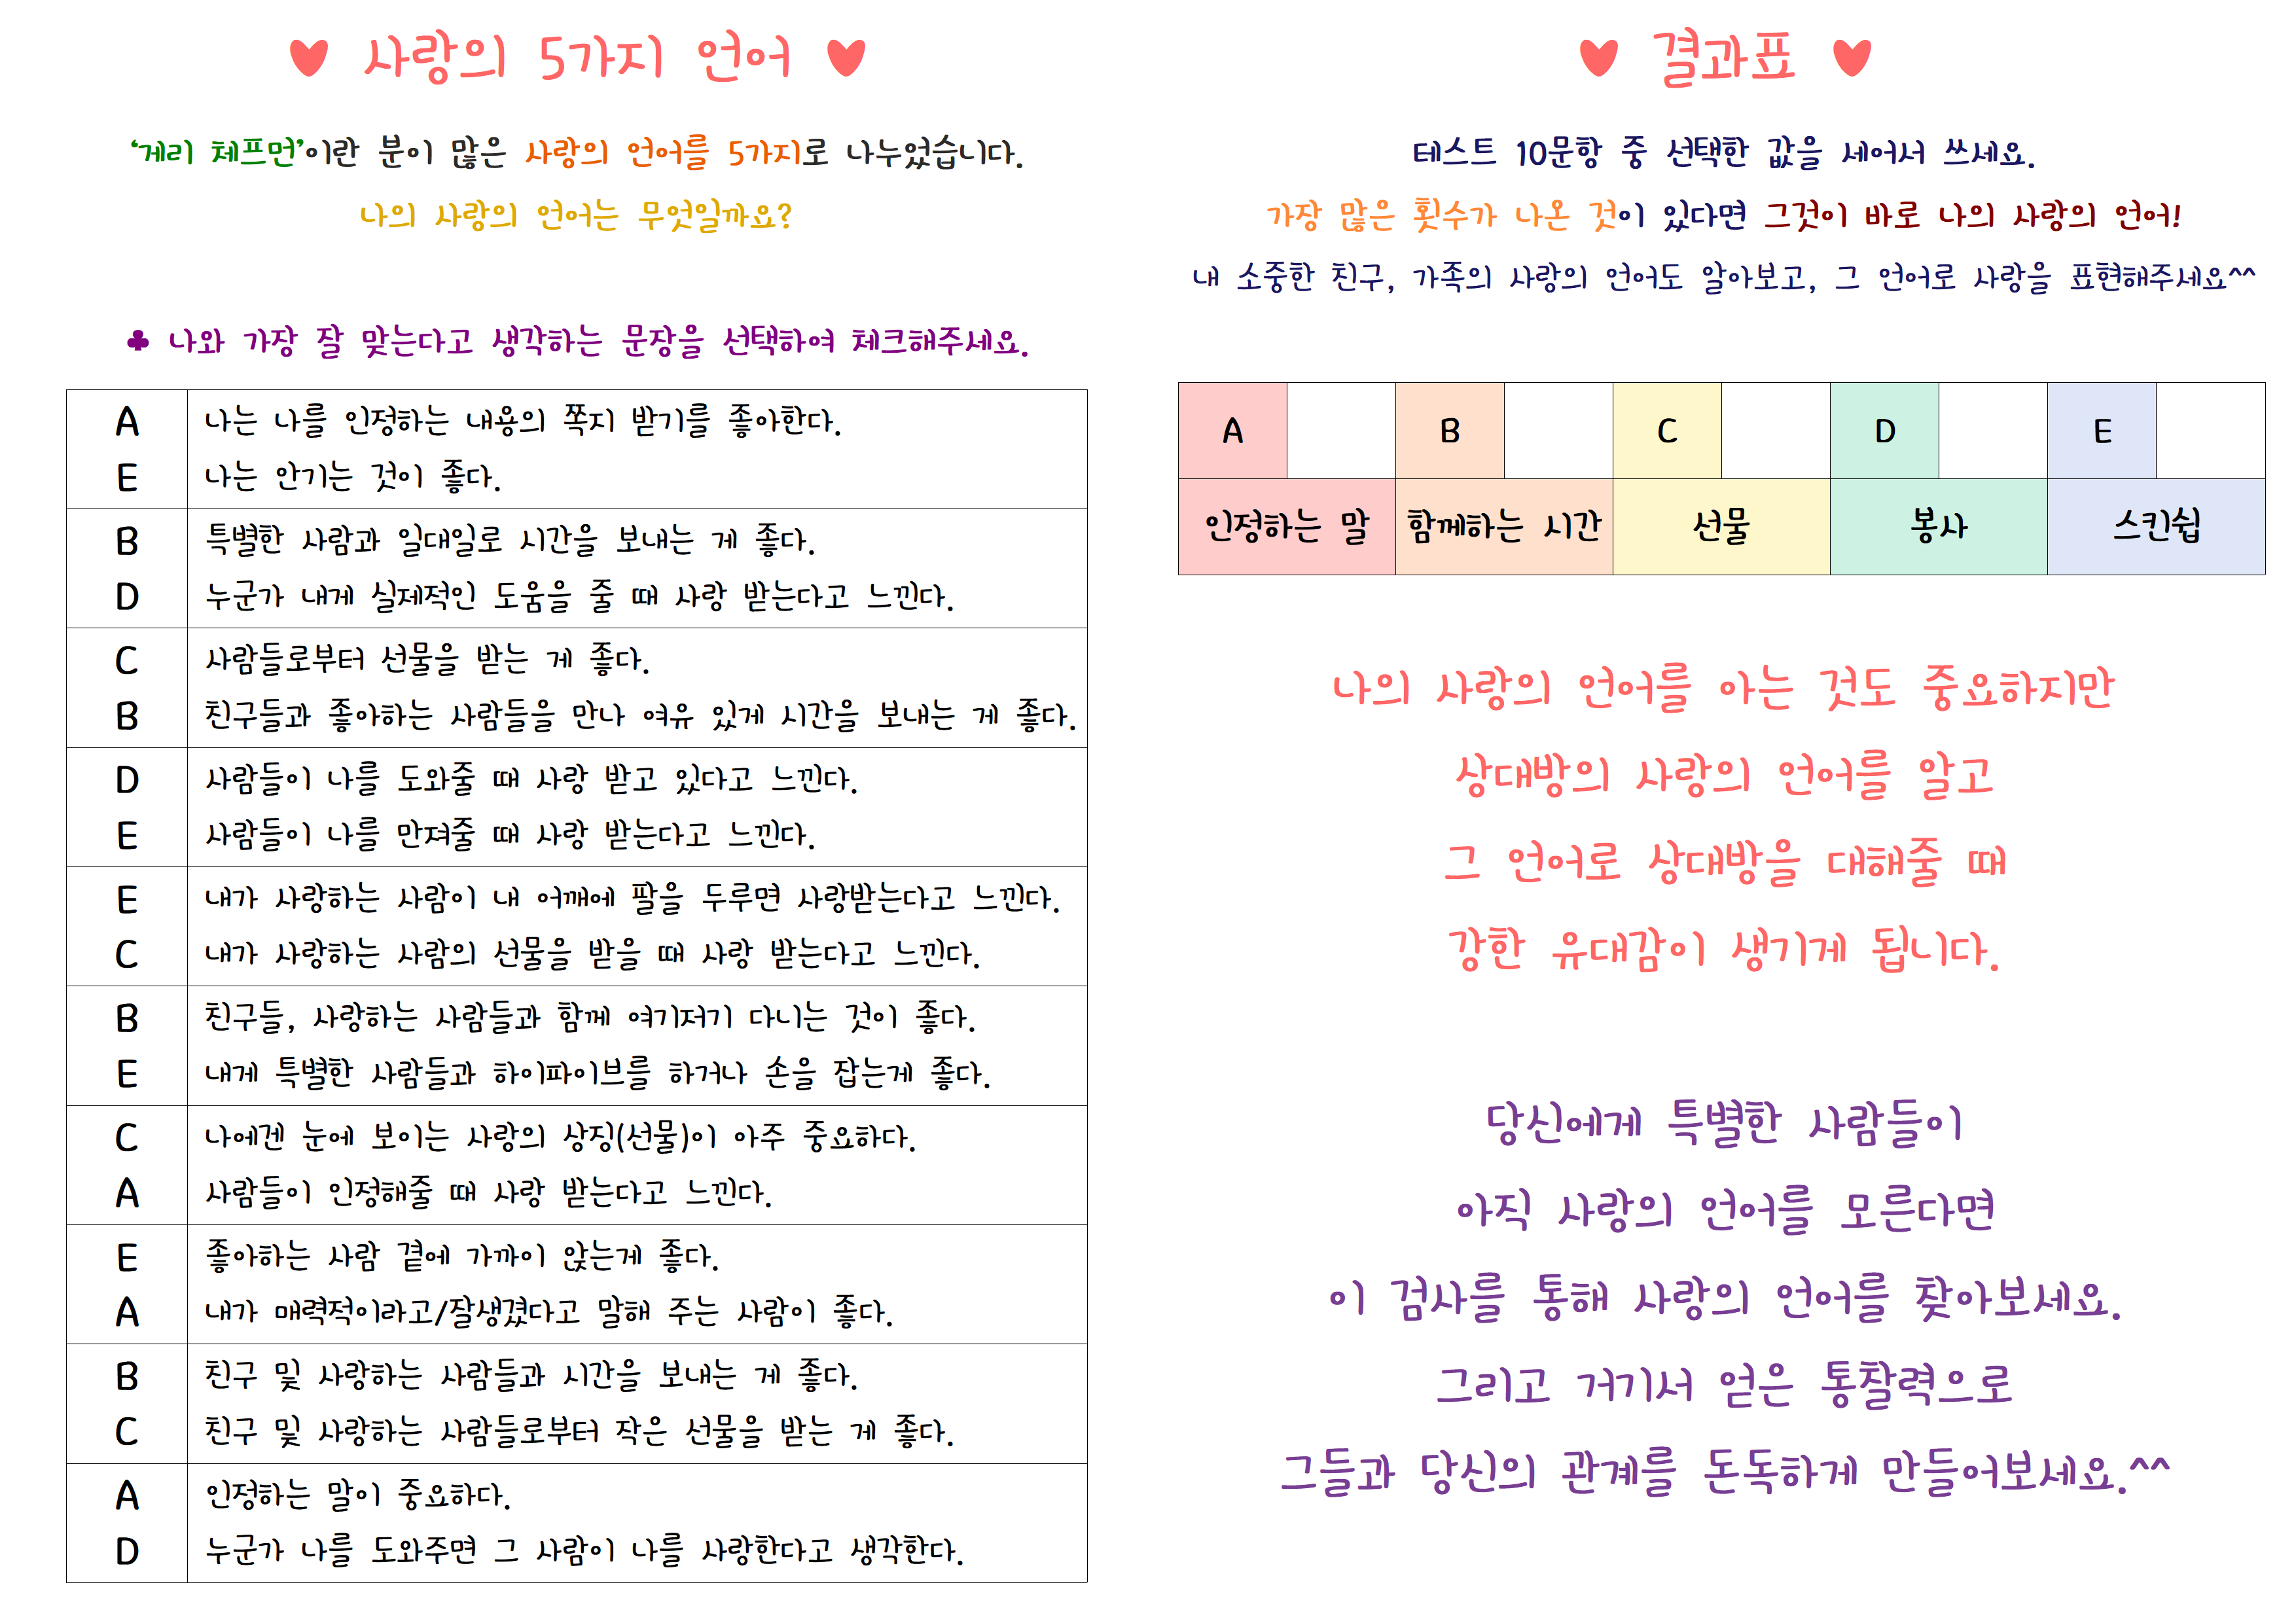 ♥ 사랑의 5가지 언어 ♥
‘게리 체프먼’이란 분이 많은 사랑의 언어를 5가지로 나누었습니다.
나의 사랑의 언어는 무엇일까요?
♣ 나와 가장 잘 맞는다고 생각하는 문장을 선택하여 체크해주세요.
A 나는 나를 인정하는 내용의 쪽지 받기를 좋아한다.
E 나는 안기는 것이 좋다.
B 특별한 사람과 일대일로 시간을 보내는 게 좋다.
D 누군가 내게 실제적인 도움을 줄 때 사랑 받는다고 느낀다.
C 사람들로부터 선물을 받는 게 좋다.
B 친구들과 좋아하는 사람들을 만나 여유 있게 시간을 보내는 게 좋다.
D 사람들이 나를 도와줄 때 사랑 받고 있다고 느낀다.
E 사람들이 나를 만져줄 때 사랑 받는다고 느낀다.
E 내가 사랑하는 사람이 내 어깨에 팔을 두루면 사랑받는다고 느낀다.
C 내가 사랑하는 사람의 선물을 받을 때 사랑 받는다고 느낀다.
B 친구들, 사랑하는 사람들과 함께 여기저기 다니는 것이 좋다.
E 내게 특별한 사람들과 하이파이브를 하거나 손을 잡는게 좋다.
C 나에겐 눈에 보이는 사랑의 상징(선물)이 아주 중요하다.
A 사람들이 인정해줄 때 사랑 받는다고 느낀다.
E 좋아하는 사람 곁에 가까이 앉는게 좋다.
A 내가 매력적이라고/잘생겼다고 말해 주는 사람이 좋다.
B 친구 및 사랑하는 사람들과 시간을 보내는 게 좋다.
C 친구 및 사랑하는 사람들로부터 작은 선물을 받는 게 좋다.
A 인정하는 말이 중요하다.
D 누군가 나를 도와주면 그 사람이 나를 사랑한다고 생각한다.
♥ 결과표 ♥
테스트 10문항 중 선택한 값을 세어서 쓰세요.
가장 많은 횟수가 나온 것이 있다면 그것이 바로 나의 사랑의 언어!
내 소중한 친구, 가족의 사랑의 언어도 알아보고, 그 언어로 사랑을 표현해주세요^^
A B C D E
인정하는 말 함께하는 시간 선물 봉사 스킨쉽
나의 사랑의 언어를 아는 것도 중요하지만
상대방의 사랑의 언어를 알고
그 언어로 상대방을 대해줄 때
강한 유대감이 생기게 됩니다.
당신에게 특별한 사람들이
아직 사랑의 언어를 모른다면
이 검사를 통해 사랑의 언어를 찾아보세요.
그리고 거기서 얻은 통찰력으로
그들과 당신의 관계를 돈독하게 만들어보세요.^^